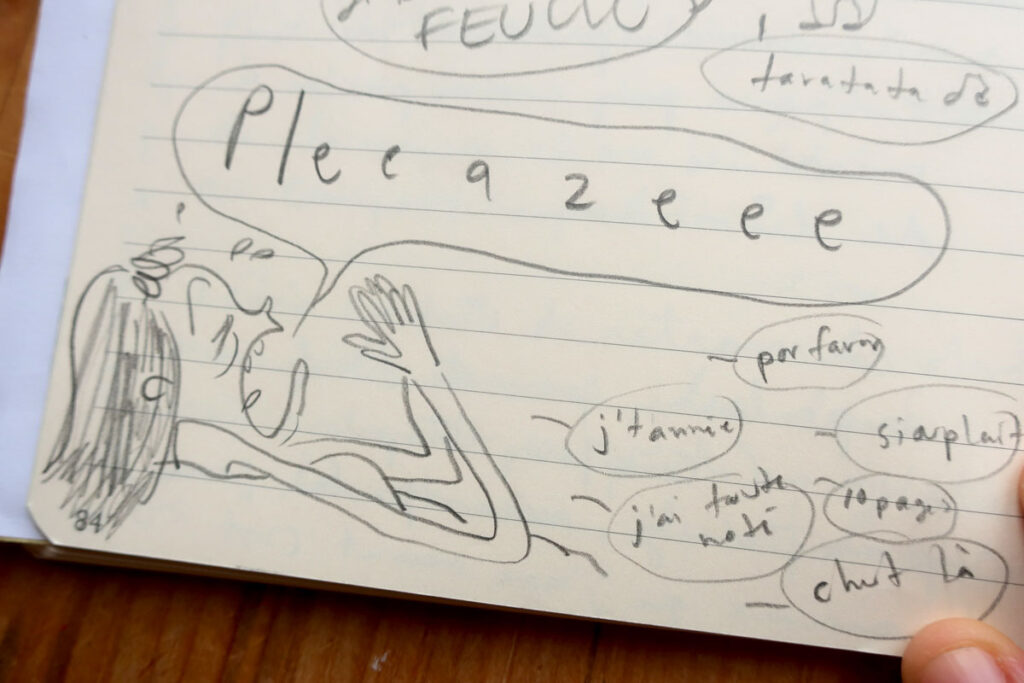 taratata
Pleeazeee
por favor
j't'annie
siouplait
j'ai toute
noté
chut là
84